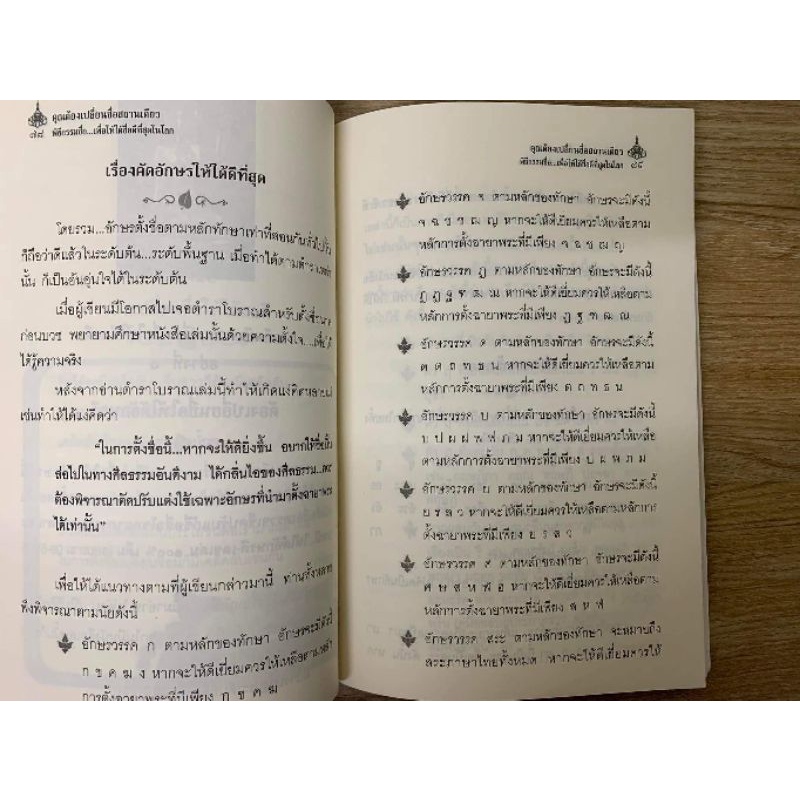 คุณต้องเปลี่ยนชื่อสถานเดียว
๔๘ พิธีกรรมชื่อ...เพื่อให้ได้ชื่อดีที่สุดในโลก
เรื่องคัดอักษรให้ได้ดีที่สุด
โดยรวม...อักษรตั้งชื่อตามหลักทักษาเท่าที่สอนกันทั่วไป
ก็ถือว่าดีแล้วในระดับต้น...ระดับพื้นฐาน เมื่อทำได้ตามตำรา
นั้น ก็เป็นอันอุ่นใจได้ในระดับต้น
เมื่อผู้เขียนมีโอกาสไปเจอตำราโบราณสำหรับตั้งชื่อ
ก่อนบวช พยายามศึกษาหนังสือเล่มนั้นด้วยความตั้งใจ....เพื่อ
ได้รู้ความจริง
หลังจากอ่านตำราโบราณเล่มนี้ทำให้เกิดแง่คิดหลาย
เช่นทำให้ได้แง่คิดว่า
"ในการตั้งชื่อนี้...หากจะให้ดียิ่งขึ้น อยากให้ชื่อนั้น
ส่อไปในทางศีลธรรมอันดีงาม ได้กลิ่นไอของศีลธรรม...
ต้องพิจารณาตัดปรับแต่งใช้เฉพาะอักษรที่นำมาตั้งฉายาพระ
ได้เท่านั้น"
เพื่อให้ได้แนวทางตามที่ผู้เขียนกล่าวมานี้ ท่านทั้งหลาย
พึงพิจารณาตามนัยดังนี้
อักษรวรรค ก ตามหลักของทักษา อักษรจะมีดังนี้
ก ข ค ฆ ง หากจะให้ดีเยี่ยมควรให้เหลือตามหลัก
การตั้งฉายาพระที่มีเพียง ก ข ค ฆ
คุณต้องเปลี่ยนชื่อสถานเดียว
พิธีกรรมชื่อ...เพื่อให้ได้ชื่อดีที่สุดในโลก ๔๙
อักษรวรรค จ ตามหลักของทักษา อักษรจะมีดังนี้
จ ฉ ช ซ ฌ ญ หากจะให้ดีเยี่ยมควรให้เหลือตาม
หลักการตั้งฉายาพระที่มีเพียง จ ฉ ช ฌ ญ
อักษรวรรค ฎ ตามหลักของทักษา อักษรจะมีดังนี้
ฎ ฏ ฐ ฑ ฒ ณ หากจะให้ดีเยี่ยมควรให้เหลือตาม
หลักการตั้งฉายาพระที่มีเพียง ฏ ฐ ฑ ฒ ณ
อักษรวรรค ด ตามหลักของทักษา อักษรจะมีดังนี้
ด ต ถ ท ธ น หากจะให้ดีเยี่ยมควรให้เหลือตาม
หลักการตั้งฉายาพระที่มีเพียง ต ถ ท ธ น
อักษรวรรค บ ตามหลักของทักษา อักษรจะมีดังนี้
บ ป ผ ฝ พ ฟ ภ ม หากจะให้ดีเยี่ยมควรให้เหลือ
ตามหลักการตั้งฉายาพระที่มีเพียง ป ผ พ ภ ม
อักษรวรรค ย ตามหลักของทักษา อักษรจะมีดังนี้
ย ร ล ว หากจะให้ดีเยี่ยมควรให้เหลือตามหลักการ
ตั้งฉายาพระที่มีเพียง ย ร ล ว
อักษรวรรค ศ ตามหลักของทักษา อักษรจะมีดังนี้
ศ ษ ส ห ฬ อ หากจะให้ดีเยี่ยมควรให้เหลือตาม
หลักการตั้งฉายาพระที่มีเพียง ส ห ฬ
อักษรวรรค สระ ตามหลักของทักษา จะหมายถึง
สระภาษาไทยทั้งหมด หากจะให้ดีเยี่ยมควรให้